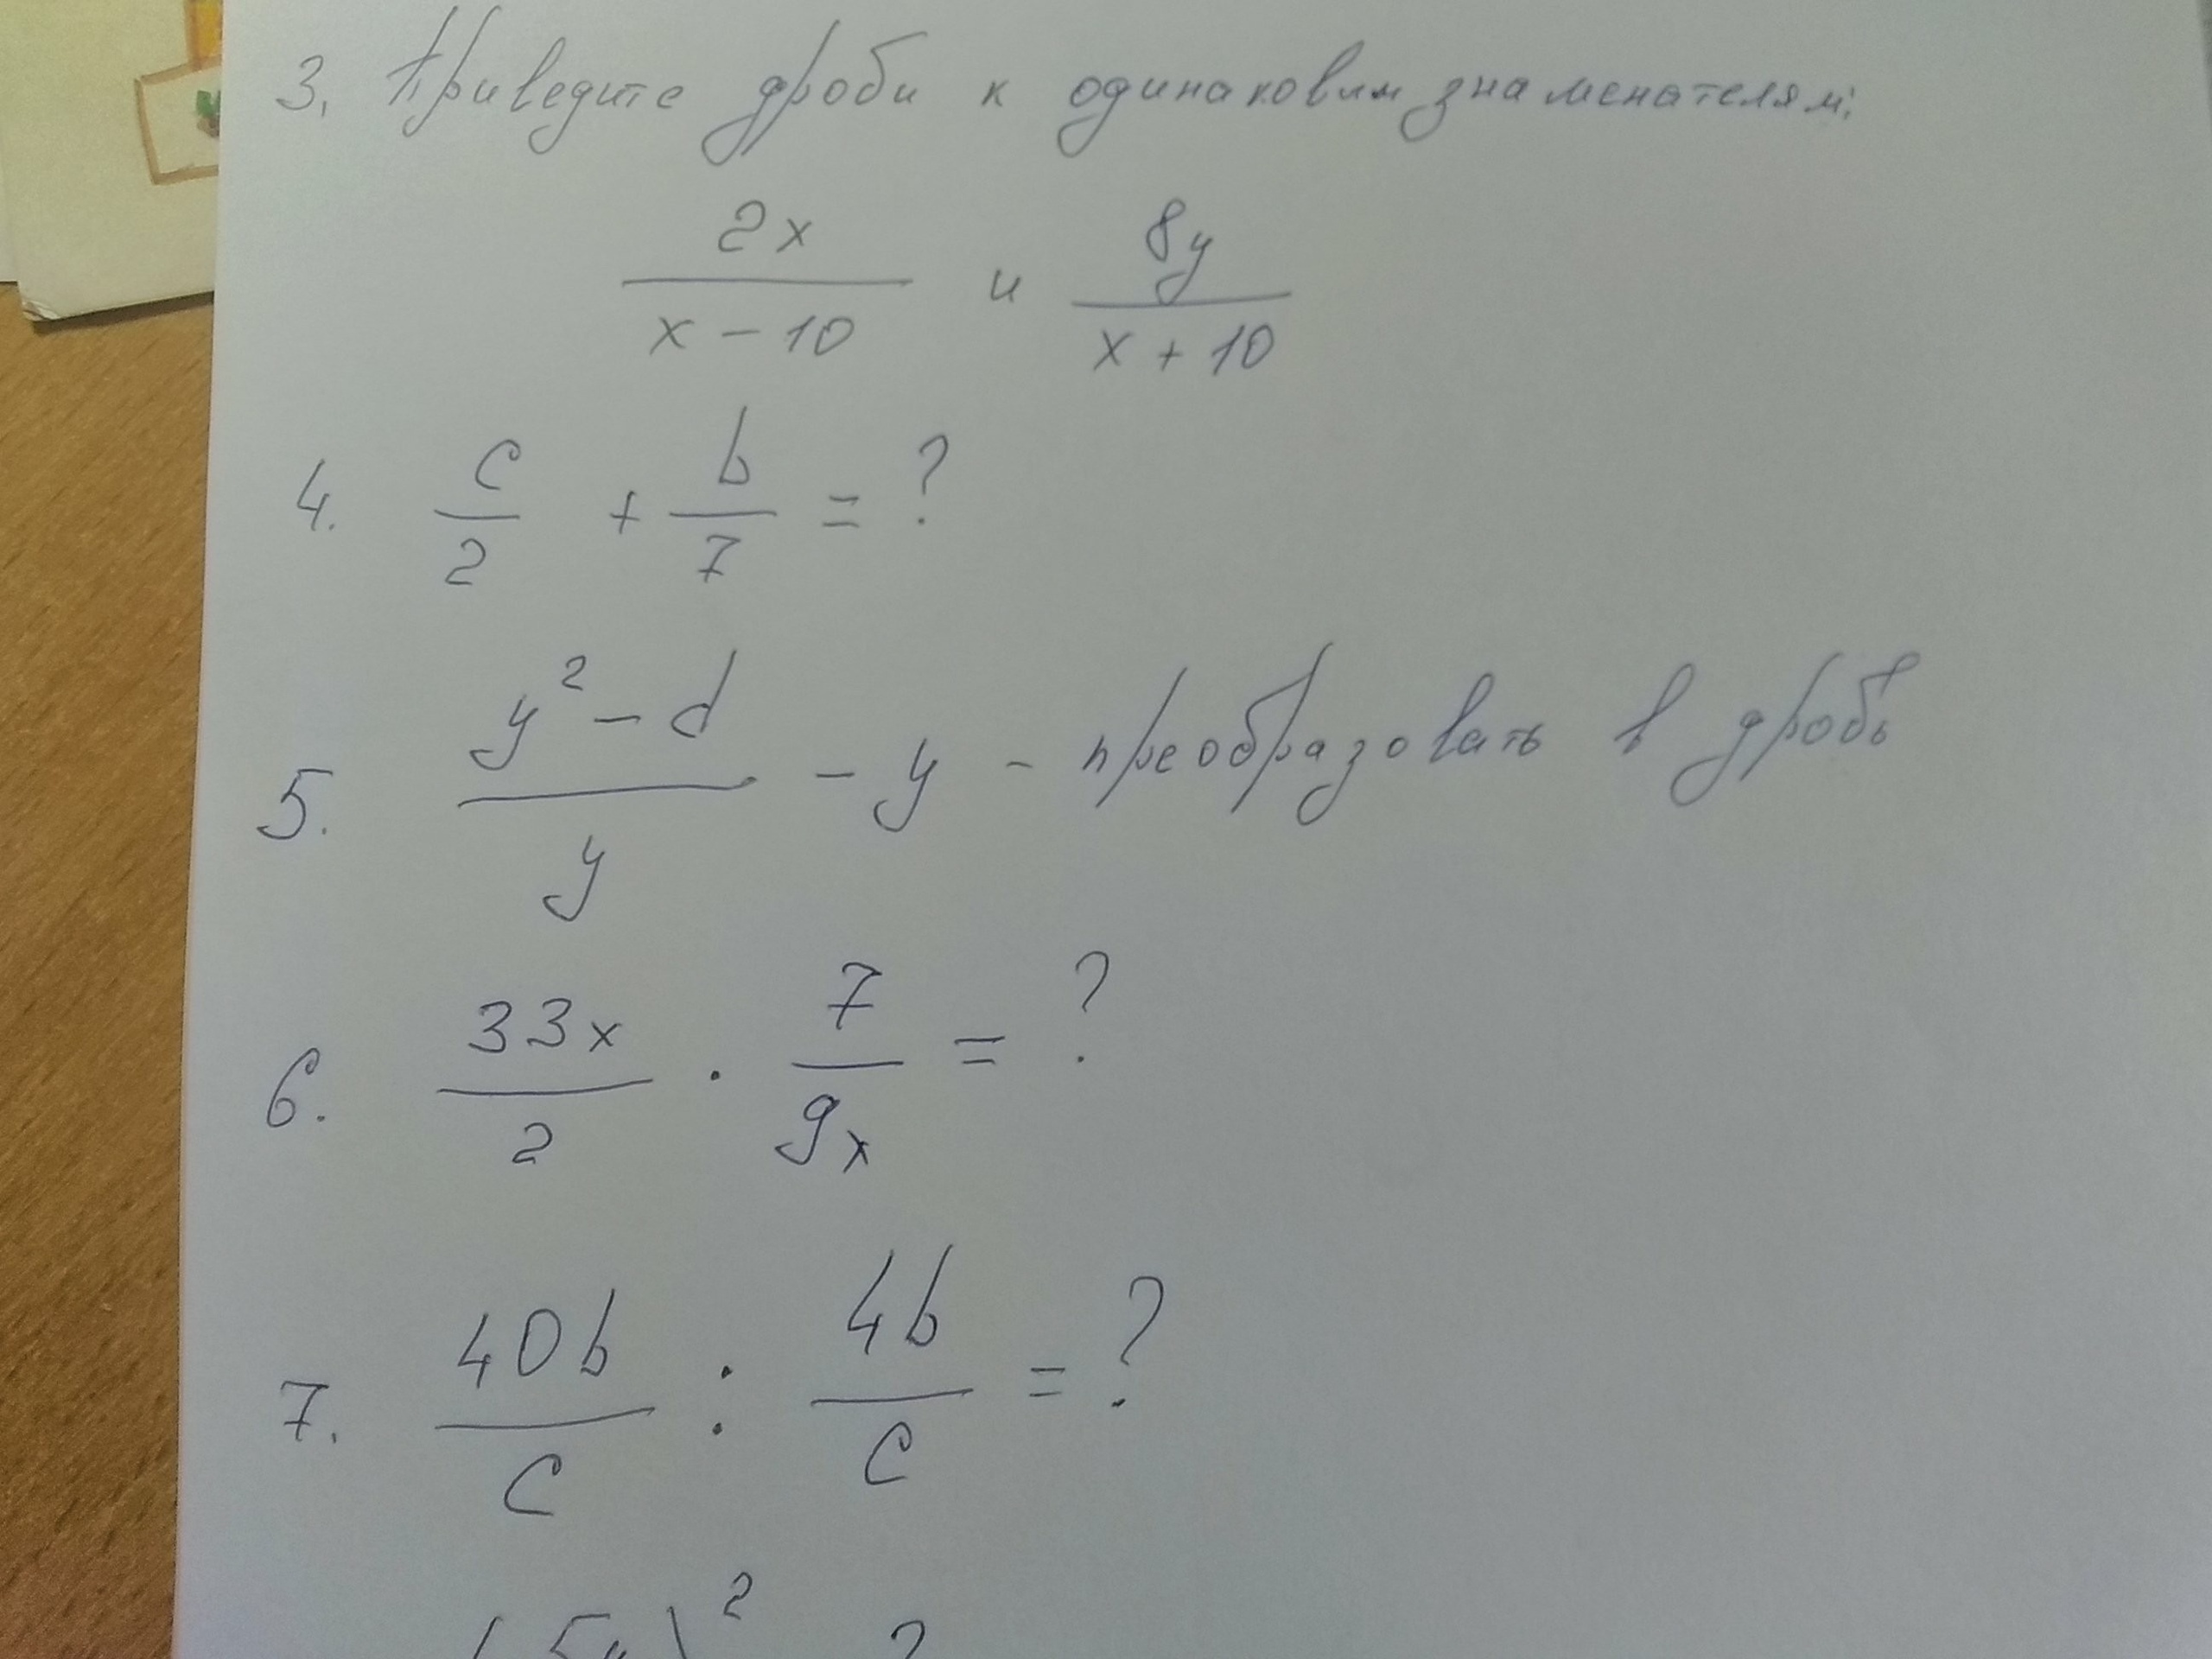 3. Приведите дроби к одинаковым знаменателям:
2x / x - 10 и 8y / x + 10
4. c/2 + b/7 = ?
5. y² - d / y - y - преобразовать в дробь
6. 33x/2 · 7/9x = ?
7. 40b/c : 4b/c = ?